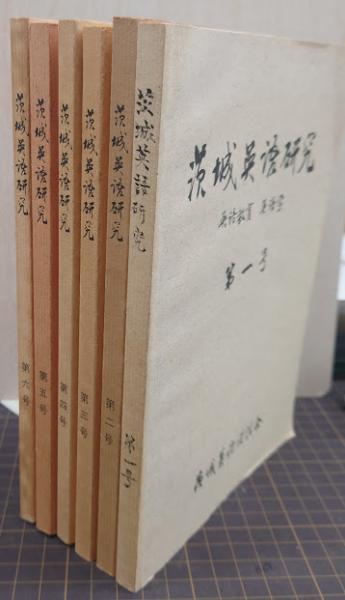 茨城英語研究
第六号
茨城英語研究
第五号
茨城英語研究
第四号
茨城英語研究
第三号
茨城英語研究
第二号
茨城英語研究
第一号
茨城英語研究
英語教育 英語学
第一号